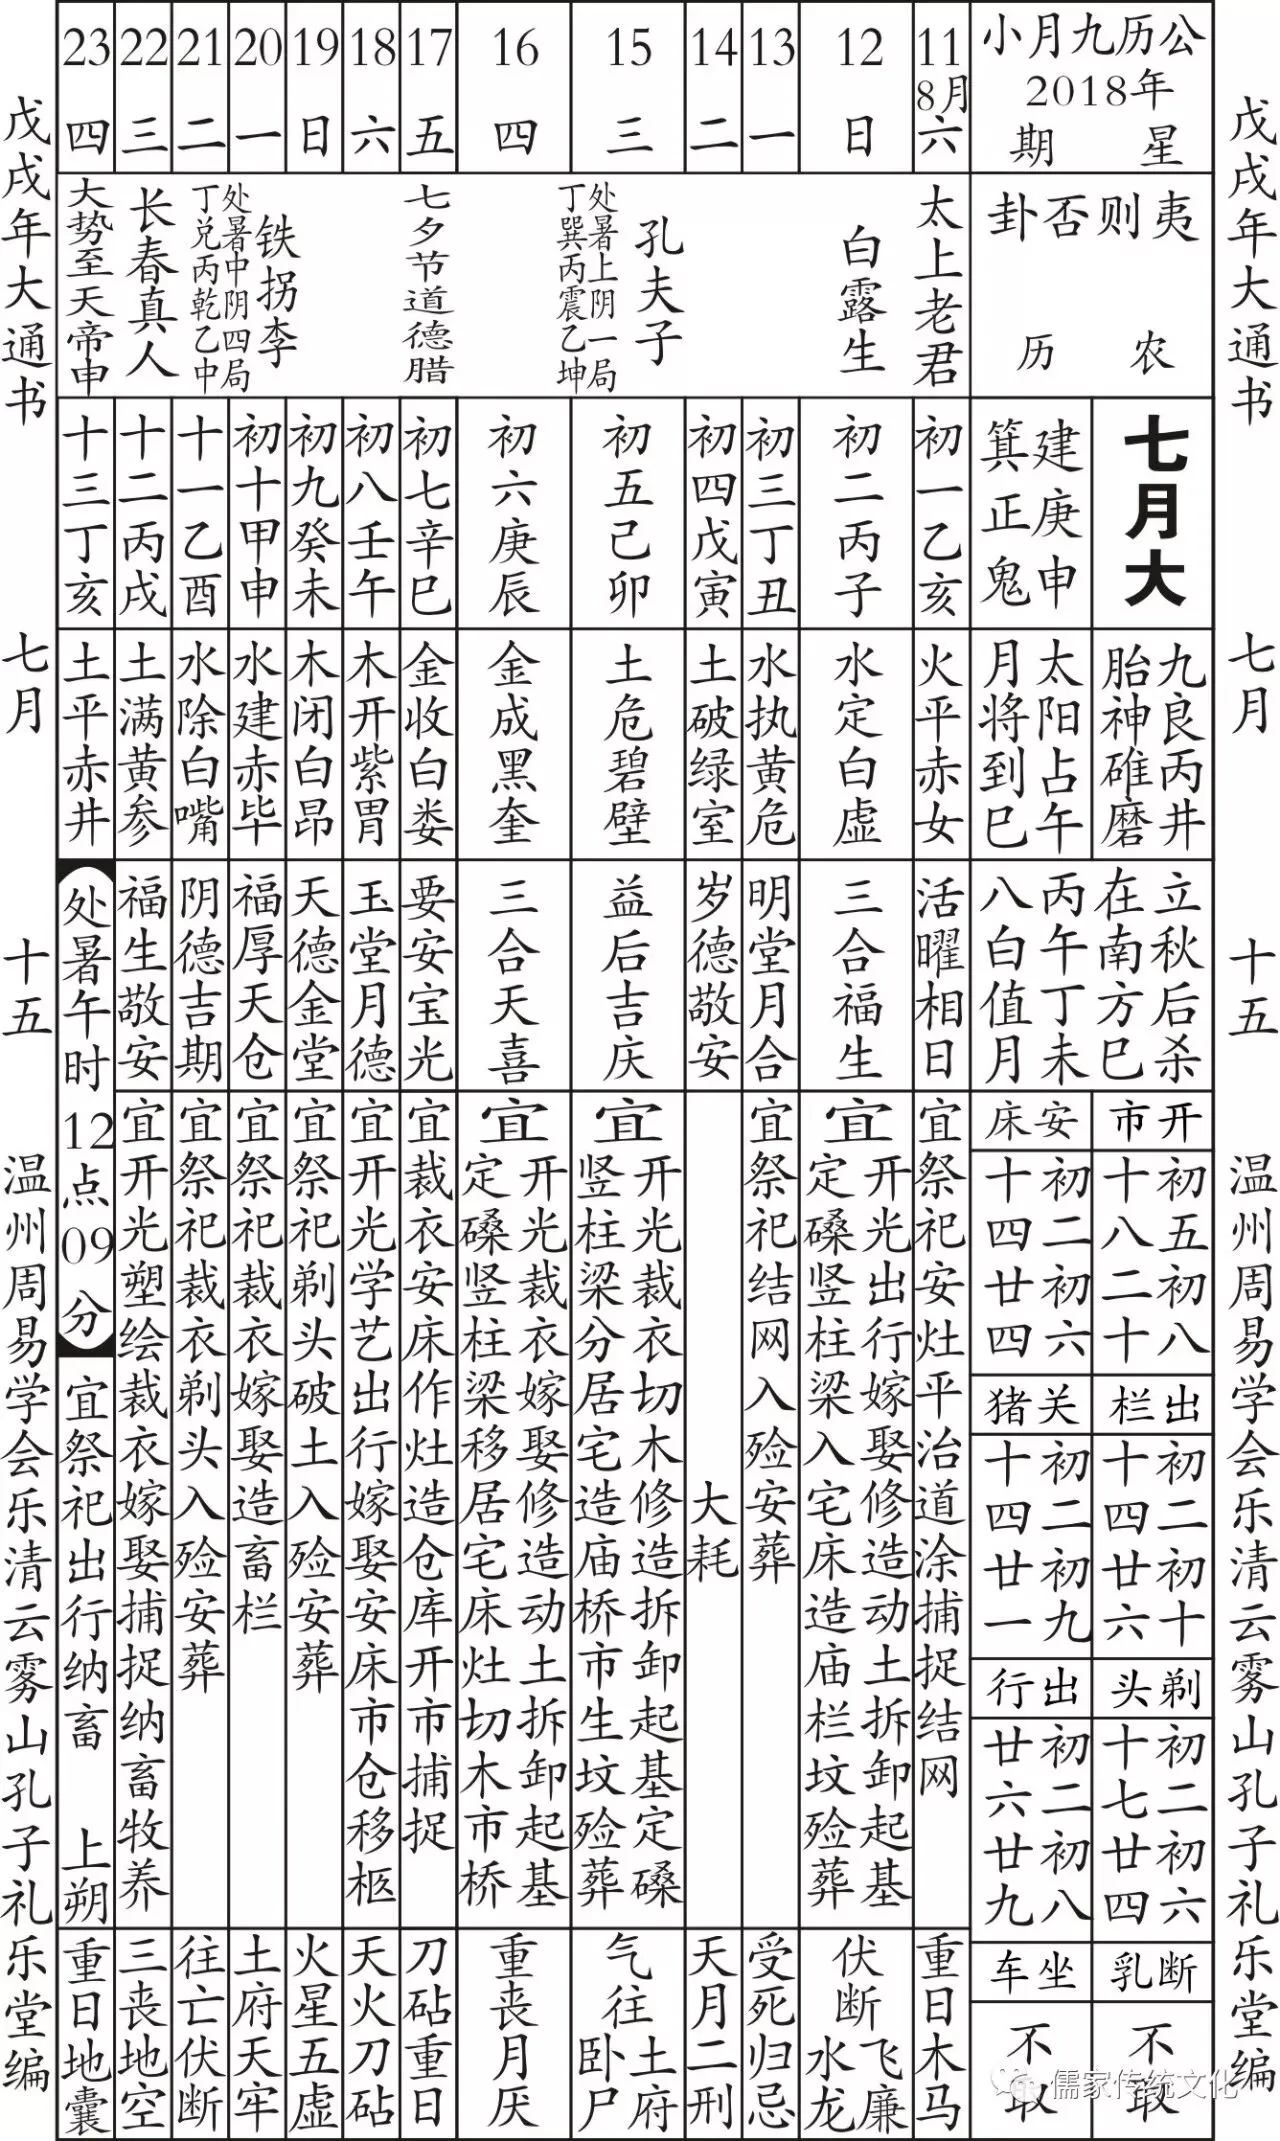 戊戌年大通书
七月
十五
温州周易学会乐清云雾山孔子礼乐堂编
公历九月小
2018年
星期
夷则否卦
农历
七月大
建庚申
箕正鬼
九良丙井
胎神碓磨
太阳占午
月将到巳
立秋后杀
在南方巳
丙午丁未
八白值月
开市
初五初八
十八二十
安床
初二初六
十四廿四
出栏
初二初十
十四廿六
关猪
初二初九
十四廿一
剃头
初二初六
十七廿四
出行
初二初八
廿六廿九
断乳
不取
坐车
不取
11
8月
六
太上老君
初一乙亥
火平赤女
活曜相日
宜祭祀安灶平治道涂捕捉结网
重日木马
12
日
白露生
初二丙子
水定白虚
三合福生
宜
开光出行嫁娶修造动土拆卸起基
定磉竖柱梁入宅床造庙栏坟殓葬
伏断
飞廉
水龙
13
一
初三丁丑
水执黄危
明堂月合
宜祭祀结网入殓安葬
受死归忌
14
二
初四戊寅
土破绿室
岁德敬安
大耗
天月二刑
15
三
孔夫子
处暑上阴一局
丁巽丙震乙坤
初五己卯
土危碧壁
益后吉庆
宜
开光裁衣切木修造拆卸起基定磉
竖柱梁分居宅造庙桥市生坟殓葬
气往
土府
卧尸
16
四
初六庚辰
金成黑奎
三合天喜
宜
开光裁衣嫁娶修造动土拆卸起基
定磉竖柱梁移居宅床灶切木市桥
重丧月厌
17
五
七夕节道德腊
初七辛巳
金收白娄
要安宝光
宜裁衣安床作灶造仓库开市捕捉
刀砧重日
18
六
初八壬午
木开紫胃
玉堂月德
宜开光学艺出行嫁娶安床市仓移柩
天火刀砧
19
日
初九癸未
木闭白昂
天德金堂
宜祭祀剃头破土入殓安葬
火星五虚
20
一
铁拐李
处暑中阴四局
丁兑丙乾乙中
初十甲申
水建赤毕
福厚天仓
宜祭祀裁衣嫁娶造畜栏
土府天牢
21
二
十一乙酉
水除白嘴
阴德吉期
宜祭祀裁衣剃头入殓安葬
往亡伏断
22
三
长春真人
十二丙戌
土满黄参
福生敬安
宜开光塑绘裁衣嫁娶捕捉纳畜牧养
三丧地空
23
四
大势至天帝申
十三丁亥
土平赤井
处暑午时12点09分
宜祭祀出行纳畜 上朔
重日地囊
戊戌年大通书
七月
十五
温州周易学会乐清云雾山孔子礼乐堂编
儒家传统文化